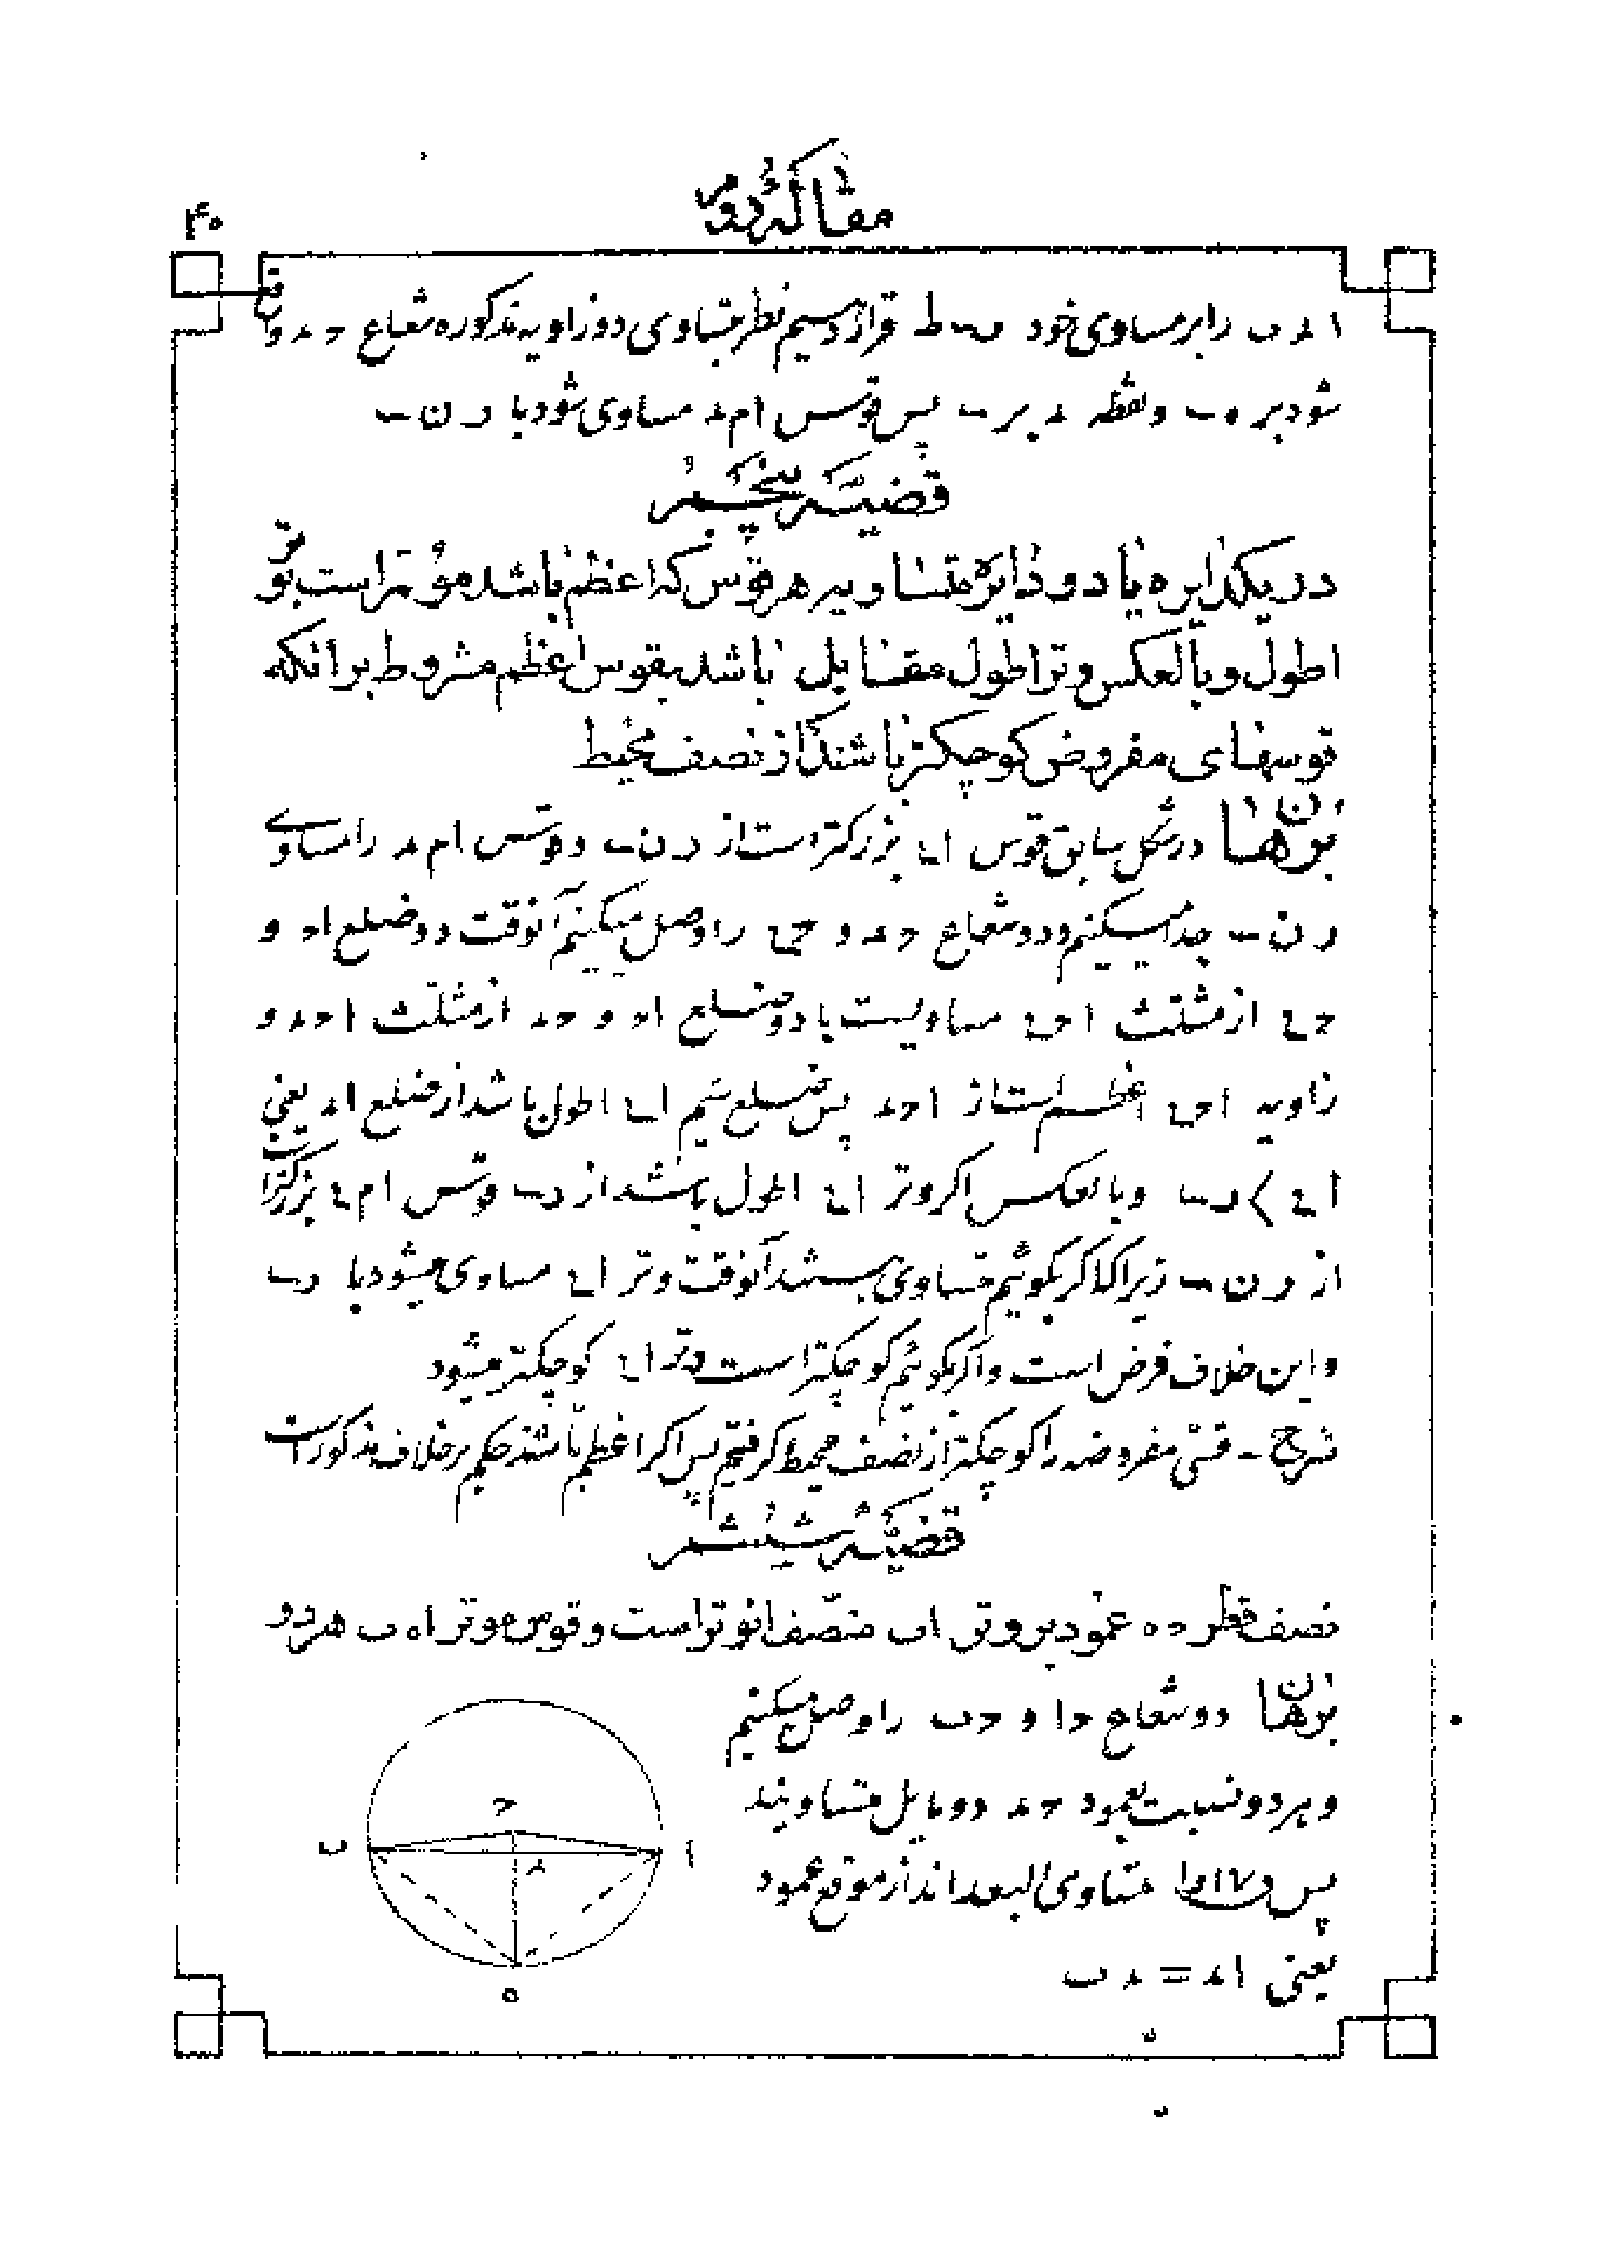 مقالهٔ دویم
۴۰
ا ء ب را بر مساوی خود ب ط قرار دهیم نظر بتساوی دو زاویه مذکوره شعاع ح ء واقع
شود بر ه ـ و نقطه ء بر ـ پس قوس ا م ء مساوی شود با ر ن ـ
قضیّه پنجم
در یکدایره یا دو دایرهٔ متساویه هر قوس که اعظم باشد موتر است بوتر
اطول و بالعکس وتر اطول مقابل باشد بقوس اعظم مشروط بر انکه
قوسهای مفروض کوچکتر باشند از نصف محیط
برهان در شکل سابق قوس ا ع بزرکتر است از ر ن ـ و قوس ا م ء را مساوی
ر ن ـ جدا میکنیم و دو شعاع ح ء و ح ع را وصل میکنیم آنوقت دو ضلع ا ح و
ح ع از مثلث ا ح ع مساویست با دو ضلع ا ح و ح ء از مثلث ا ح ء و
زاویه ا ح ع اعظم است از ا ح ء پس ضلع سیم ا ع اطول باشد از ضلع ا ء یعنی
ا ع > ر ـ و بالعکس اکر وتر ا ع اطول باشد از ر ـ قوس ا م ع بزرکتر است
از ر ن ـ زیرا که اکر بکوئیم متساوی هستند آنوقت وتر ا ع مساوی میشود با ر ـ
و این خلاف فرض است و اکر بکوئیم کوچکتر است وتر ا ع کوچکتر میشود
شرح - قسیّ مفروضه را کوچکتر از نصف محیط کرفتیم پس اکر اعظم باشند حکم بر خلاف مذکور است
قضیّه ششم
نصف قطر ح ه عمود بر وتر ا ب منصّف انوتر است و قوس موتر ا ه ب هر دو
برهان دو شعاع ح ا و ح ب را وصل میکنیم
و هر دو نسبت بعمود ح ء دو مایل متساویند
پس متساوی البعد اند از موقع عمود
یعنی ا ء = ء ب
ح
ب
ء
ا
ه